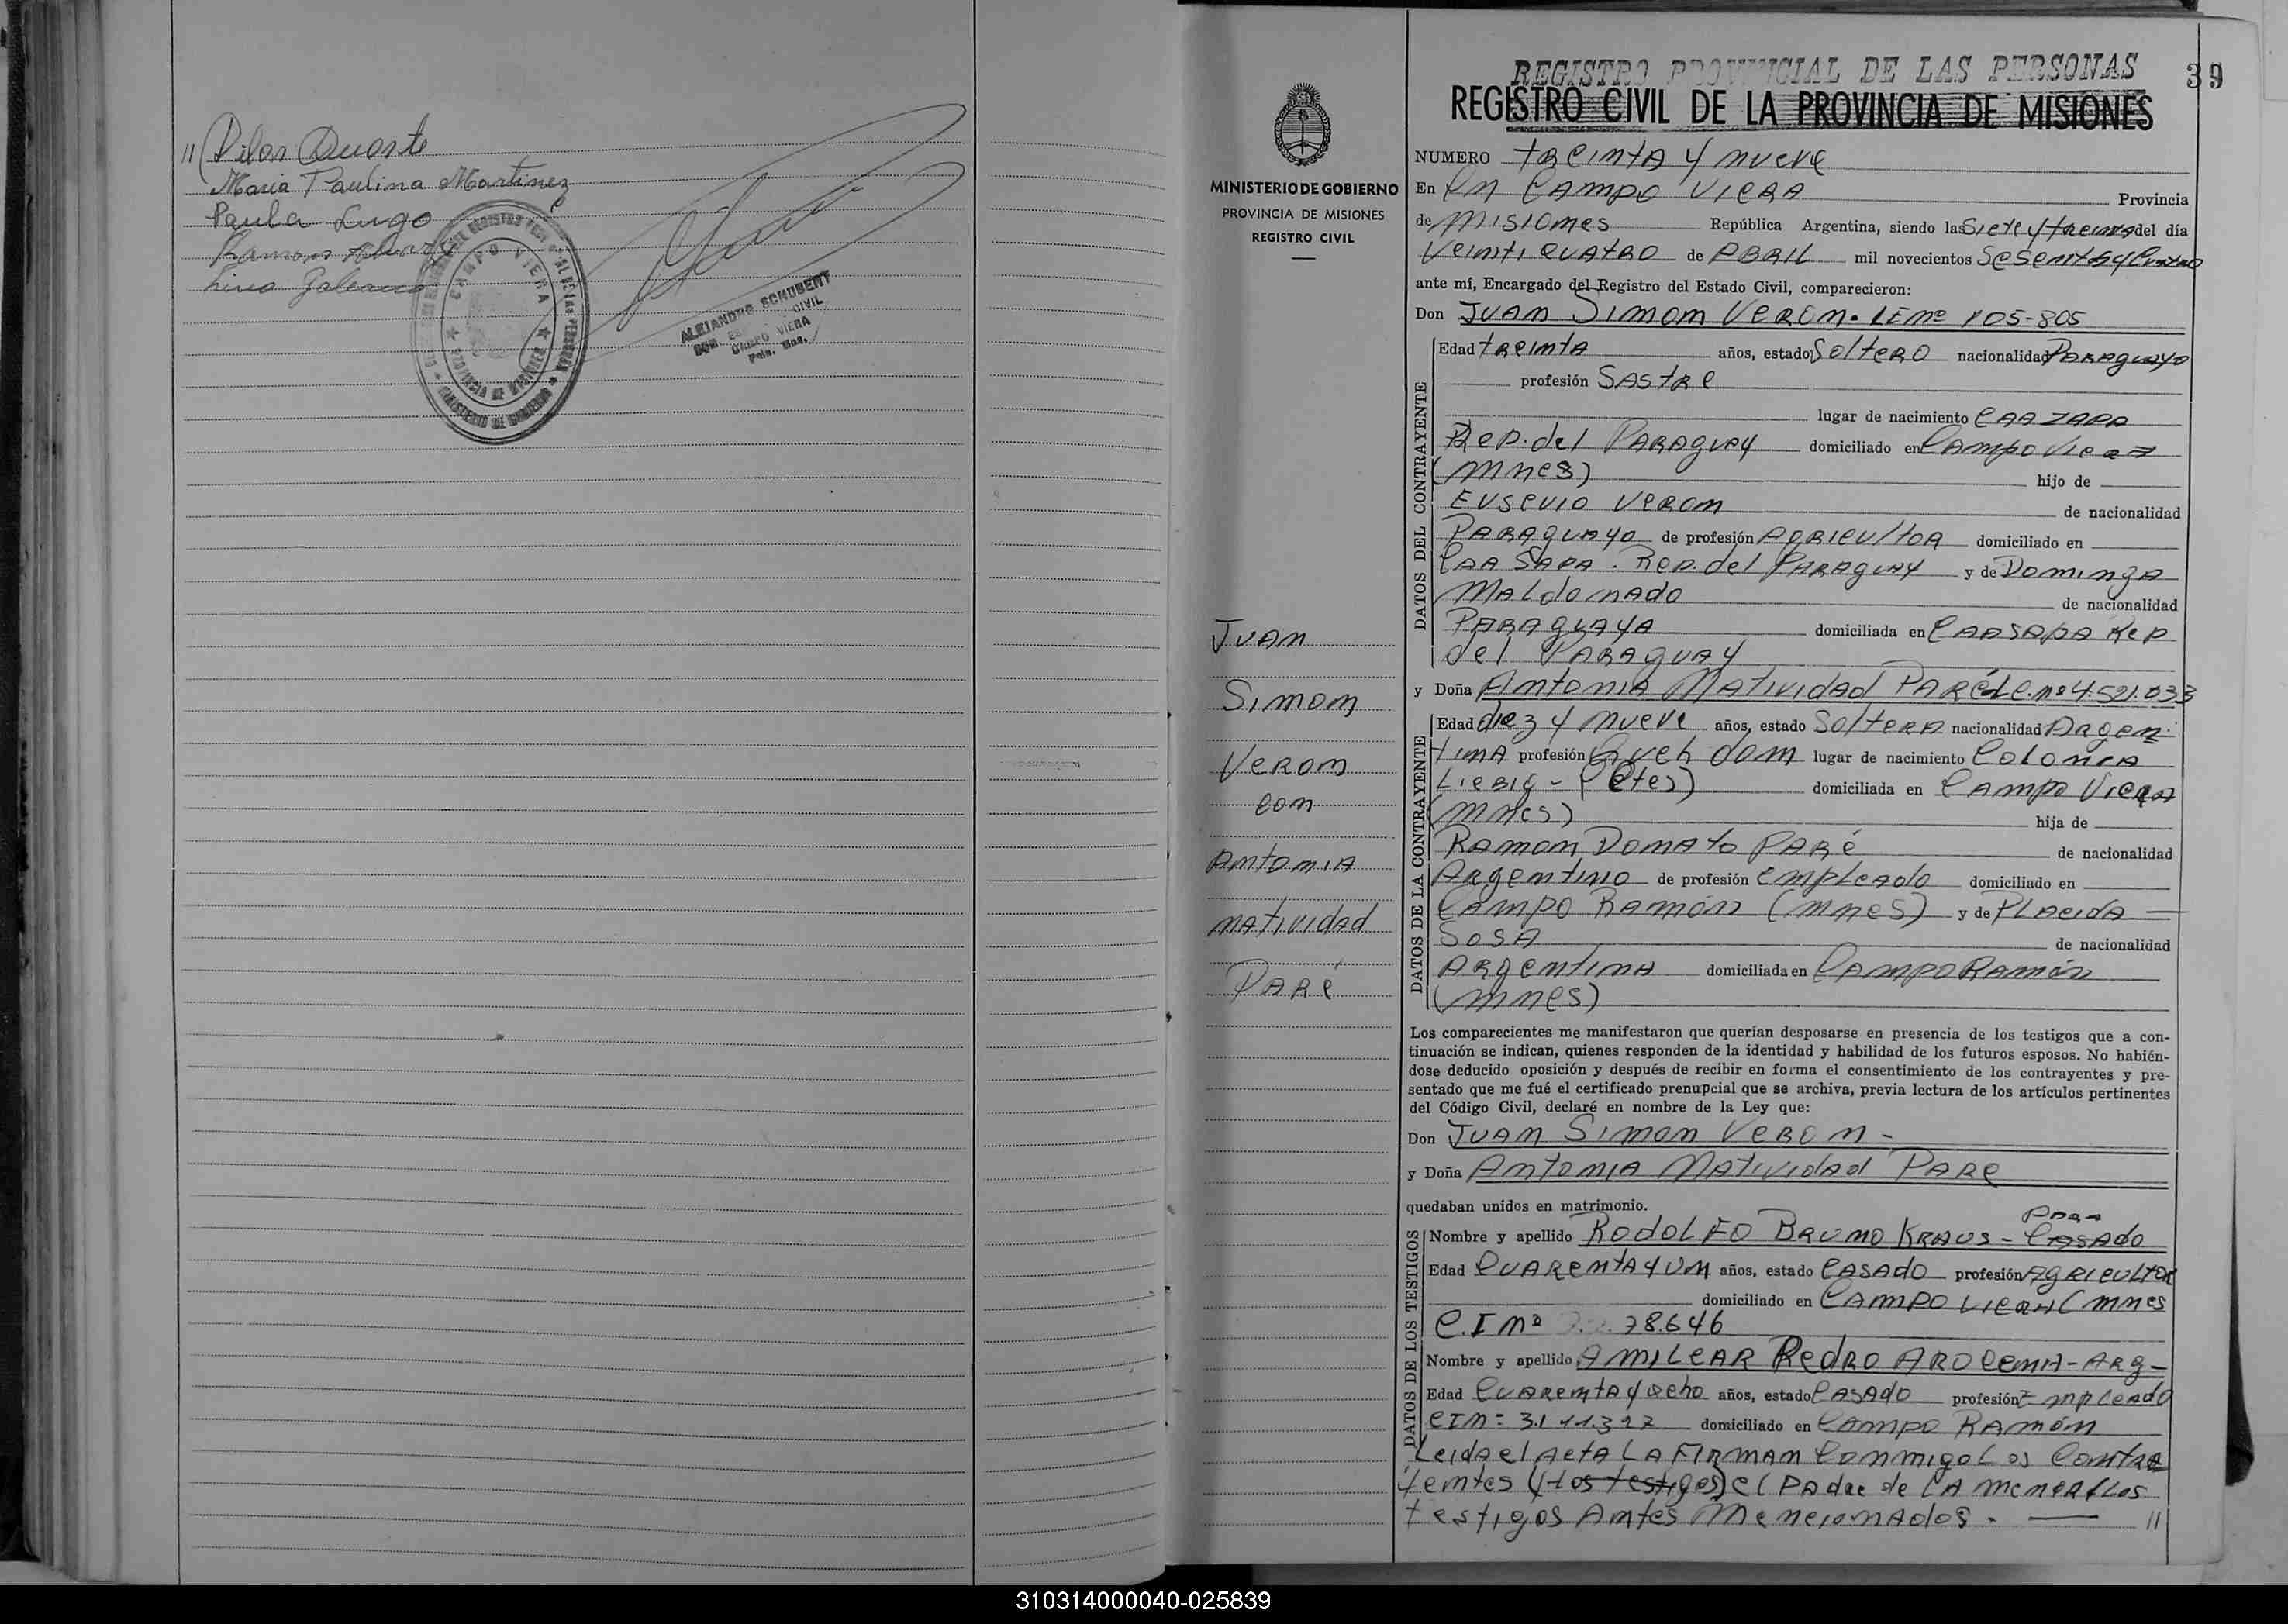 // Pilar Duarte
Maria Paulina Martinez
Paula Lugo
Ramon
Lino Galeano
CAMPO VIERA
PROVINCIA DE MISIONES
MINISTERIO DE GOBIERNO
ALEJANDRO SCHUBERT
CIVIL
CAMPO VIERA
MINISTERIO DE GOBIERNO
PROVINCIA DE MISIONES
REGISTRO CIVIL
Juan
Simon
Veron
con
Antonia
Natividad
Paré
REGISTRO PROVINCIAL DE LAS PERSONAS
39
REGISTRO CIVIL DE LA PROVINCIA DE MISIONES
NUMERO treinta y nueve
En En Campo Viera Provincia
de Misiones República Argentina, siendo las Siete y treinta del día
Veinti cuatro de Abril mil novecientos Sesenta y Cuatro
ante mí, Encargado del Registro del Estado Civil, comparecieron:
Don Juan Simon Veron. LE nº 105-805
DATOS DEL CONTRAYENTE
Edad treinta años, estado Soltero nacionalidad Paraguayo
profesión Sastre
lugar de nacimiento Caazapa
Rep. del Paraguay domiciliado en Campo Viera
(Mnes) hijo de
Eusevio Veron de nacionalidad
Paraguayo de profesión Agricultor domiciliado en
Caa Sapa. Rep. del Paraguay y de Dominga
Maldonado de nacionalidad
Paraguaya domiciliada en Caasapa Rep
del Paraguay
y Doña Antonia Natividad Paré L.C. nº 4.521.033
DATOS DE LA CONTRAYENTE
Edad diez y nueve años, estado Soltera nacionalidad Argen
tina profesión Queh dom lugar de nacimiento Colonia
Liebig - (Ctes) domiciliada en Campo Viera
(Mnes) hija de
Ramon Donato Paré de nacionalidad
Argentino de profesión empleado domiciliado en
Campo Ramón (Mnes) y de Placida
Sosa de nacionalidad
Argentina domiciliada en Campo Ramón
(Mnes)
Los comparecientes me manifestaron que querían desposarse en presencia de los testigos que a con-
tinuación se indican, quienes responden de la identidad y habilidad de los futuros esposos. No habién-
dose deducido oposición y después de recibir en forma el consentimiento de los contrayentes y pre-
sentado que me fué el certificado prenupcial que se archiva, previa lectura de los artículos pertinentes
del Código Civil, declaré en nombre de la Ley que:
Don Juan Simon Veron -
y Doña Antonia Natividad Pare
quedaban unidos en matrimonio.
DATOS DE LOS TESTIGOS
Nombre y apellido Rodolfo Bruno Kraus - Casado
Edad Cuarenta y un años, estado Casado profesión Agricultor
domiciliado en Campo Viera (Mnes
C.I nº 78.646
Nombre y apellido Amilcar Pedro Arocena - Arg -
Edad Cuarenta y ocho años, estado Casado profesión Empleado
CI n= 3.111.327 domiciliado en Campo Ramón
Leida el acta la firman conmigo los contra
yentes (y los testigos) el padre de la menor y los
testigos antes mencionados. - //
310314000040-025839